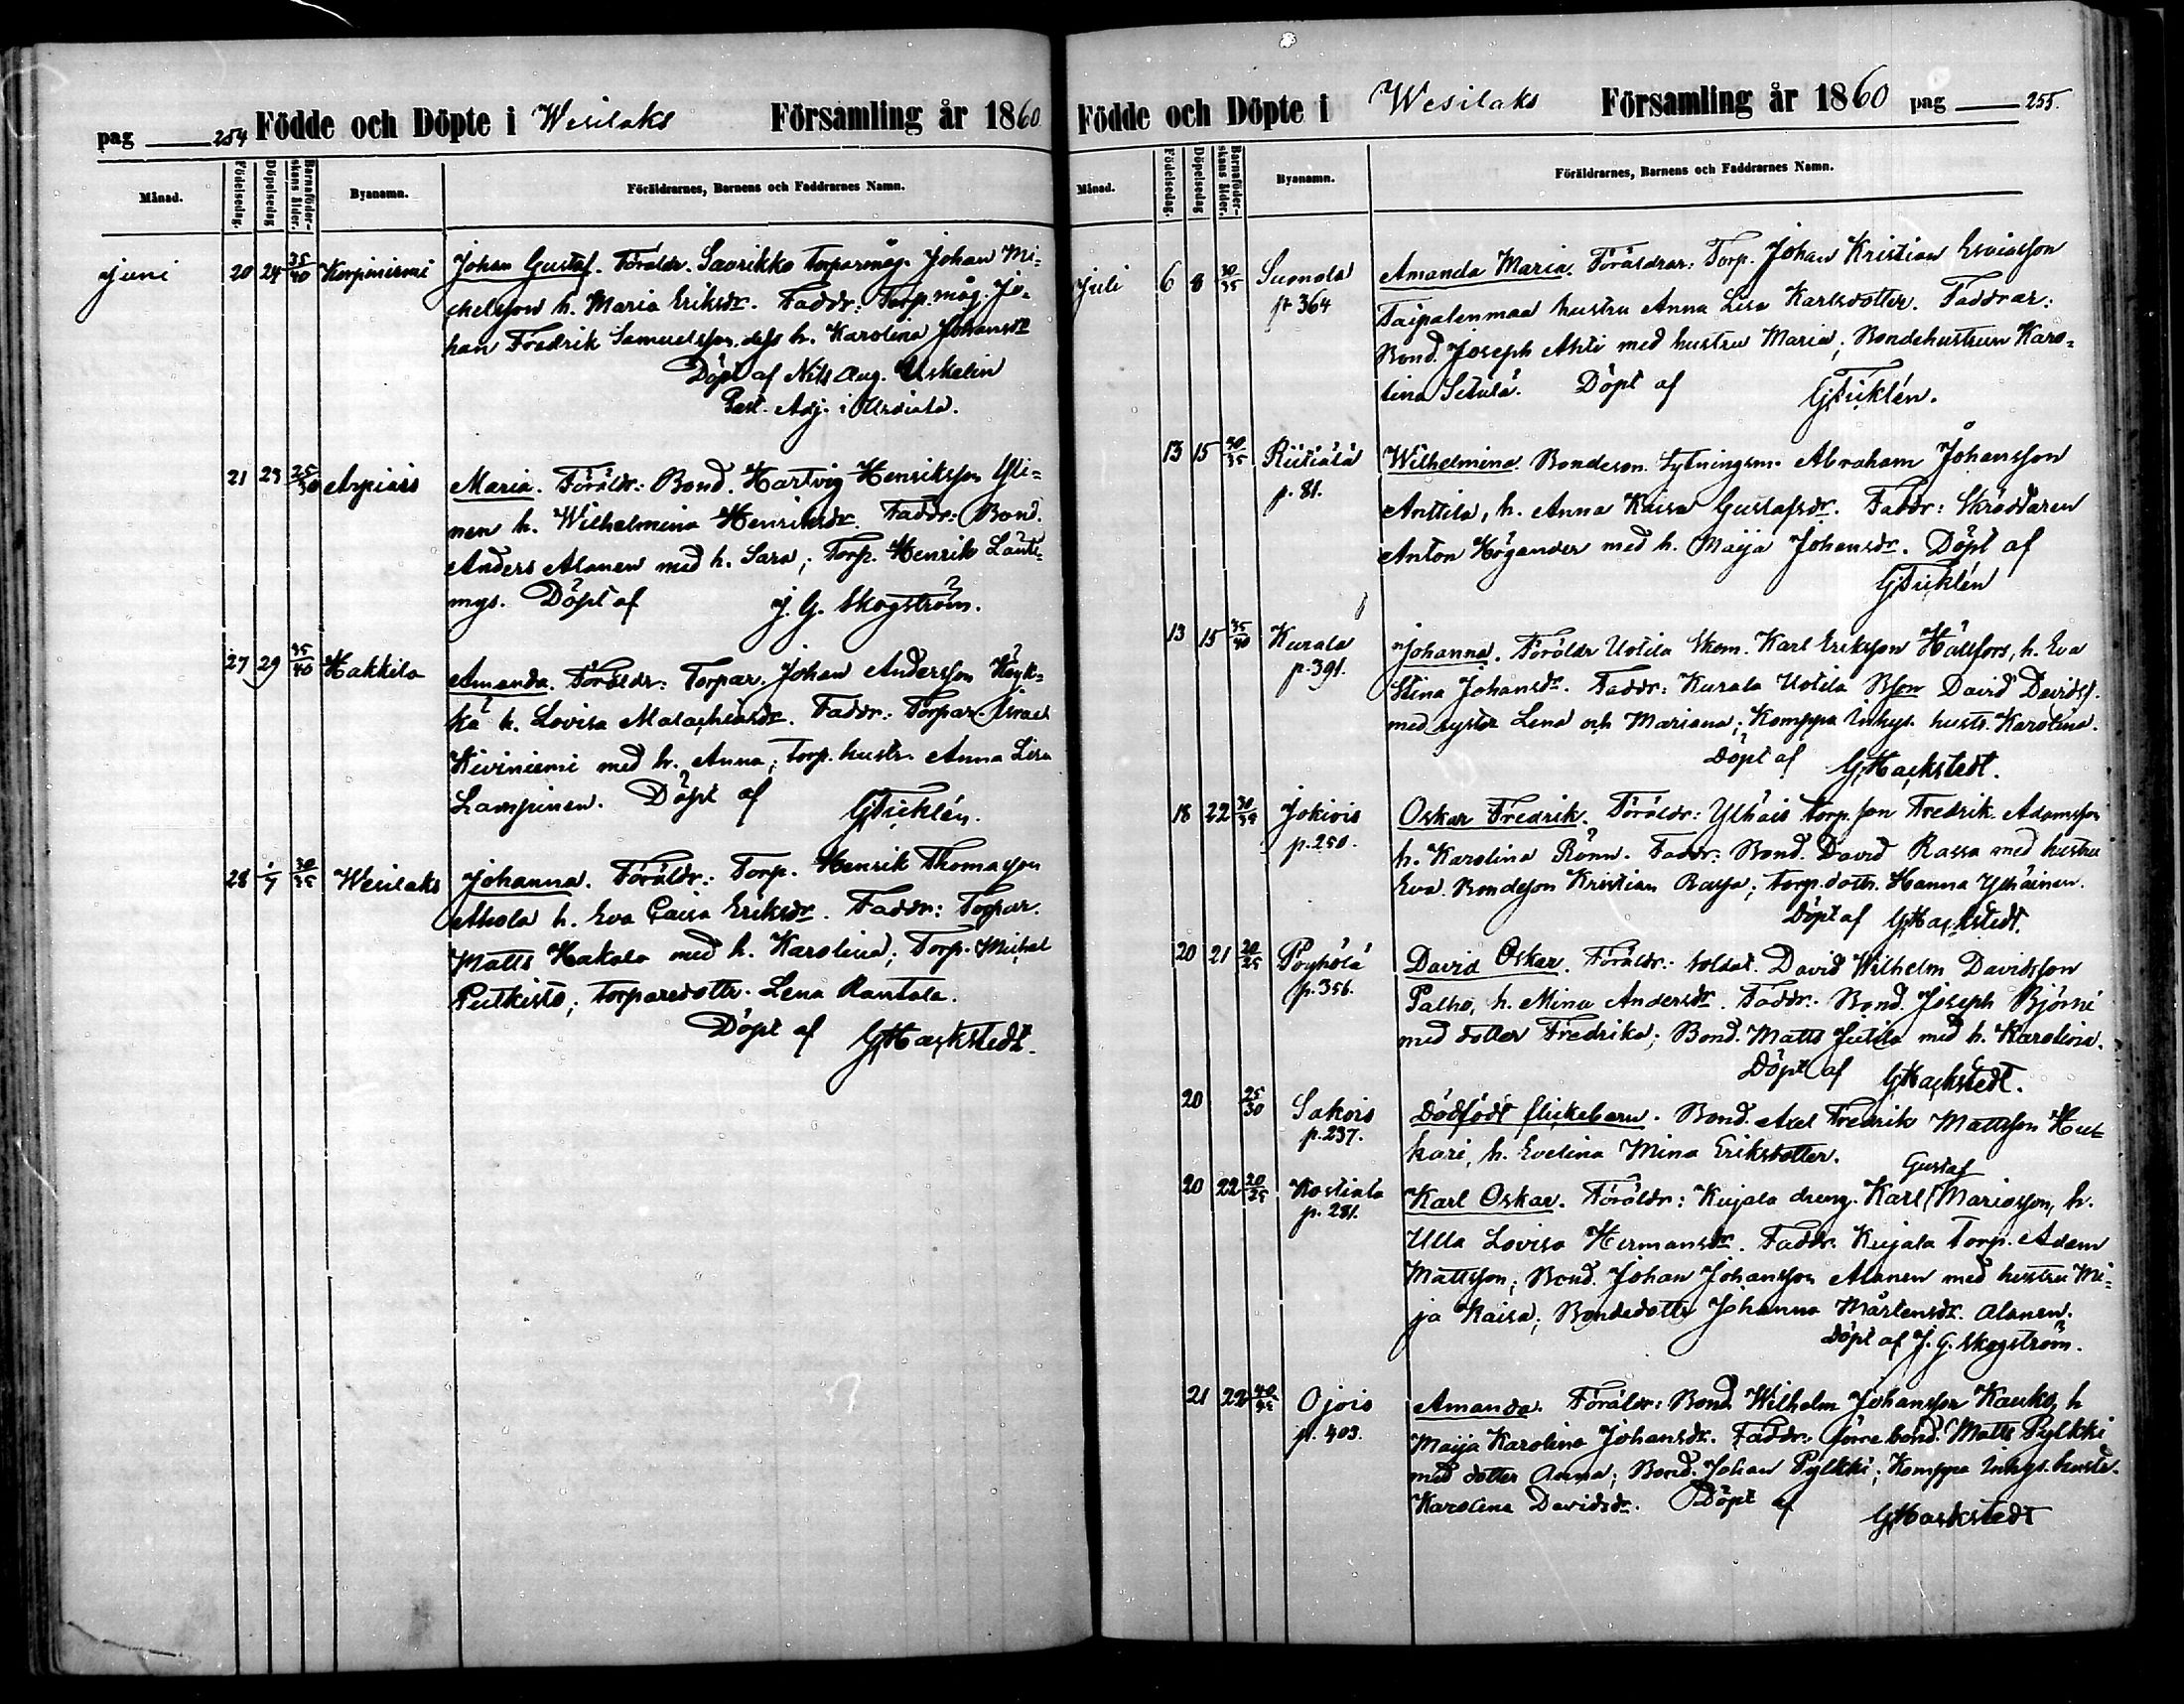 pag 254 Födde och Döpte i Wesilaks Församling år 1860
Månad. Födelsedag. Döpelsedag Barnaföderskans ålder. Byanamn. Föräldrarnes, Barnens och Faddrarnes Namn.
juni 20 24 35/40 Korpiniemi Johan Gustaf. Föräldr. Savrikko Torparmåg. Johan Mi-
chelsson h. Maria Eriksdr. Faddr: Torp. måg. Jo-
han Fredrik Samuelsson, dess h. Karolina Johansdr
Döpt af Nils Aug. Uskelin
Past. Adj. i Urdiala.
21 23 25/30 Arpiais Maria. Föräldr: Bond. Hartvig Henriksson Yli-
nen h. Wilhelmina Henriksdr. Faddr: Bond.
Anders Alanen med h. Sara; Torp. Henrik
Döpt af J. G. Skogström.
27 29 35/40 Hakkila Amanda. Föräldr: Torpar. Johan Andersson Köyk-
kä h. Lovisa Malachiasdr. Faddr: Torpar. Israel
Kiviniemi med h. Anna; Torp. hustr. Anna Lisa
Lampinen. Döpt af G Ticklén.
28 1/7 30/35 Wesilaks Johanna. Föräldr: Torp. Henrik Thomasson
Ahola h. Eva Caisa Eriksdr. Faddr: Torpar.
Matts Hakala med h. Karolina; Torp. Michel
Putkisto; Torparedottr. Lena Rantala.
Döpt af G Hackstedt.
Födde och Döpte i Wesilaks Församling år 1860 pag 255.
Månad. Födelsedag. Döpelsedag Barnaföderskans ålder. Byanamn. Föräldrarnes, Barnens och Faddrarnes Namn.
Juli 6 8 30/35 Suomela Amanda Maria. Föräldrar: Torp. Johan Kristian Esaiasson
p 364 Taipalenmaa hustru Anna Lisa Karlsdotter. Faddrar:
Bond. Joseph Ahti med hustru Maria; Bondehustrun Karo-
lina Setälä. Döpt af G Ticklén.
13 15 30/35 Riitiälä Wilhelmina. Bondeson. Sytningsm. Abraham Johansson
p. 81. Anttila, h. Anna Kaisa Gustafsdr. Faddr: Skräddaren
Anton Högander med h. Maija Johansdr. Döpt af
G Ticklén
13 15 35/40 Kurala Johanna. Föräldr Uotila Skom. Karl Eriksson Hällfors, h. Eva
p. 391. Stina Johansdr. Faddr: Kurala Uotila Bson David Davidss.
med syster Lena och Mariana; Komppa Inhys. hustr. Karolina.
Döpt af G Hackstedt.
18 22 30/35 Jokiois Oskar Fredrik. Föräldr: Ylhäis Torp. son Fredrik Adamsson
p. 250. h. Karolina Rönn. Faddr: Bond. David Rassa med hustru
Eva. Bondeson Kristian Rassa; Torp. dottr. Hanna Ylhäinen.
Döpt af G Hackstedt.
20 21 20/25 Pöyhölä David Oskar. Föräldr: Soldat. David Wilhelm Davidsson
p. 356. Palho, h. Mina Andersdr. Faddr: Bond. Joseph Björni
med dotter Fredrika; Bond. Matts Jutila med h. Karolina.
Döpt af G Hackstedt.
20 25/30 Sakois Dödfödt flickebarn. Bond. Axel Fredrik Mattsson Huh-
p. 237. kari, h. Evelina Mina Eriksdotter.
Gustaf
20 22 20/25 Kostiala Karl Oskar. Föräldr: Kujala dreng. Karl Mariasson, h.
p. 281. Ulla Lovisa Hermansdr. Faddr: Kujala Torp. Adam
Mattsson; Bond. Johan Johansson Alanen med hustru Ma-
ja Kaisa; Bondedottr Johanna Mårtensdr. Alanen.
Döpt af J. G. Skogström.
21 22 40/45 Ojois Amanda. Föräldr: Bond Wilhelm Johansson Kauko, h
p. 403. Maija Karolina Johansdr. Faddr: förre bond. Matts Pylkki
med dotter Anna; Bond. Johan Pylkki; Komppa Inhys. hustr.
Karolina Davidsdr. Döpt af G Hackstedt